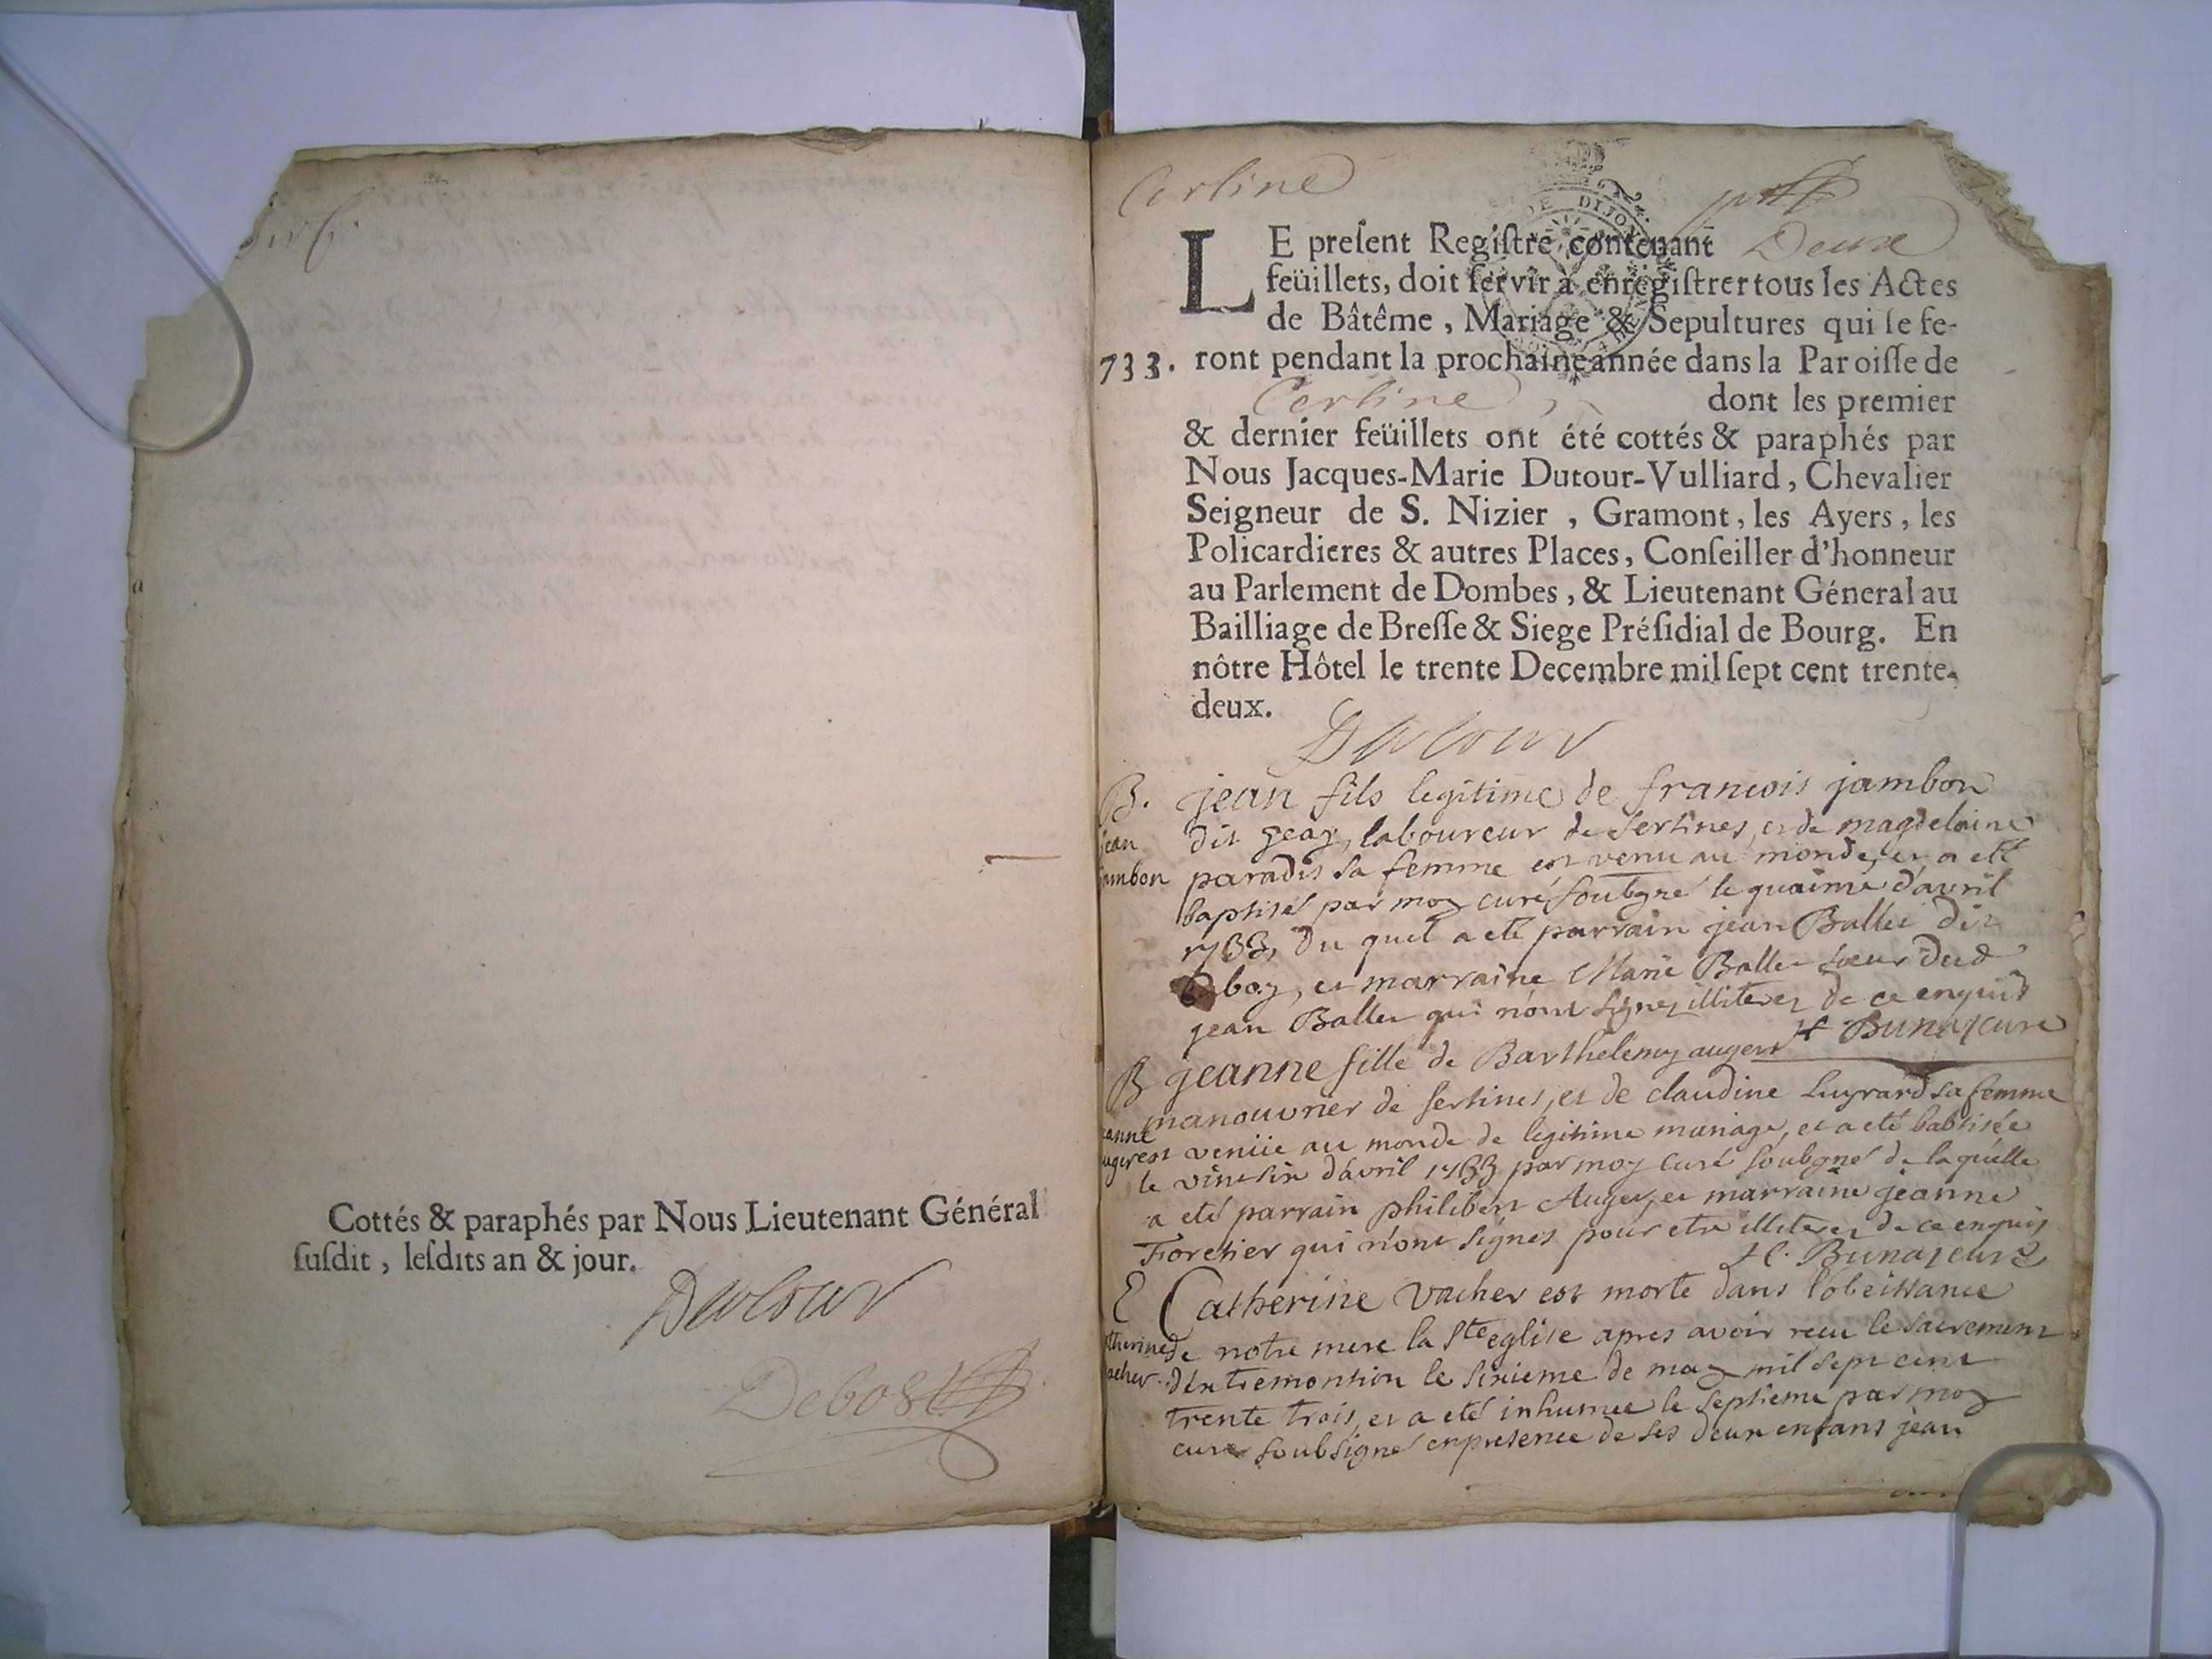 Cottés & paraphés par Nous Lieutenant Général
susdit, lesdits an & jour.
Dutour
Debost
Certine
DE DIJON
LE present Registre contenant Deux
feüillets, doit servir à enregistrer tous les Actes
de Bâtême, Mariage & Sepultures qui se fe-
733. ront pendant la prochaine année dans la Paroisse de
Certine, dont les premier
& dernier feüillets ont été cottés & paraphés par
Nous Jacques-Marie Dutour-Vulliard, Chevalier
Seigneur de S. Nizier, Gramont, les Ayers, les
Policardieres & autres Places, Conseiller d'honneur
au Parlement de Dombes, & Lieutenant Géneral au
Bailliage de Bresse & Siege Présidial de Bourg. En
nôtre Hôtel le trente Decembre mil sept cent trente-
deux.
Dutour
B. jean fils legitime de francois jambon
jean dit geay, laboureur de Sertines, et de magdelaine
jambon paradis sa femme est venu au monde, et a ete
baptisé par moy curé soubgné le d'avril
1733, du quel a eté parrain jean Ballet dit
boy, et marraine Marie Ballet soeur dud
jean Ballet qui n'ont signez illiterez de ce enquis
H Bunaz curé
B jeanne fille de Barthelemy auger
manouvrier de sertines, et de claudine Lugrard sa femme
eanne
uger est venüe au monde de legitime mariage, et a eté babtisée
le vintsix d'avril 1733 par moy curé soubgné de laquelle
a eté parrain philibert Auger, et marraine jeanne
Foretier qui n'ont signés pour etre illiterez de ce enquis
H. Bunaz curé
E Catherine Vacher est morte dans l'obeissance
therine de notre mere la Ste eglise apres avoir reçu le sacrement
acher. d'extremontion le sixieme de may mil sept cent
trente trois, et a eté inhumée le septieme par moy
curé soubsigné en presence de ses deux enfans jean